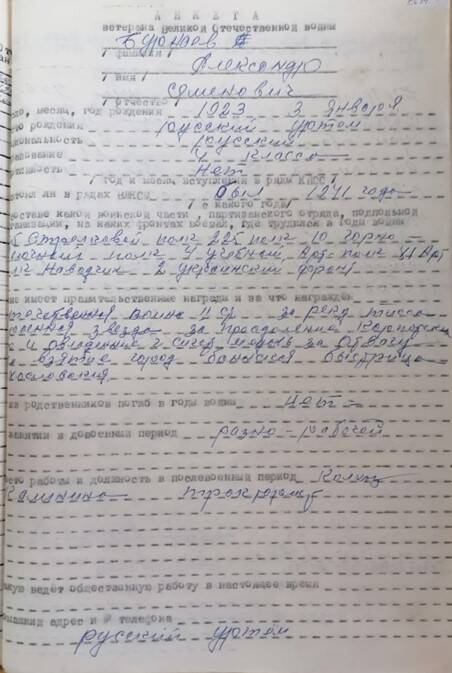 АНКЕТА
ветерана Великой Отечественной войны
/ фамилия /
Александр
/ имя /
Семенович
/ отчество /
ло, месяц, год рождения 1923 3 января
то рождения русский Уртем
иональность русский
азование 4 класса
тийность Нет
/ год и месяц вступления в ряды КПСС /
тоял ли в рядах ВЛКСМ был 1941 года
/ с какого года /
оставе какой воинской части, партизанского отряда, подпольной
ганизации, на каких фронтах воевал, где трудился в годы войны
Стрелковой полк 225 полк 10 горно-
полк 4 учебном, Арт. полк 81 Арт
Наводчик 2 украинский фронт
ие имеет правительственные награды и за что награжден
течественная война II ср за реку тисса
звезда за
и медаль за отвагу
взятие город баньска быстрица
из родственников погиб в годы войны нет
занятия в довоенный период разно-рабочей
сто работы и должность в послевоенный период Колхоз
Калинина
акую ведёт общественную работу в настоящее время
машний адрес и № телефона
русский Уртем